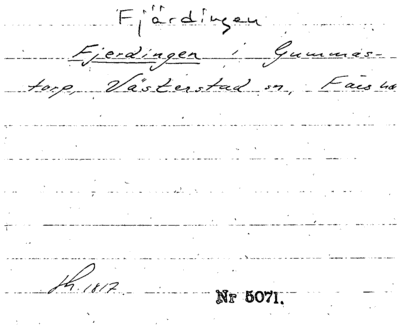 Fjärdingen
Fjerdingen i Gummas-
torp, Västerstad sn, Färs hd
Sk. 1817.
Nr 5071.